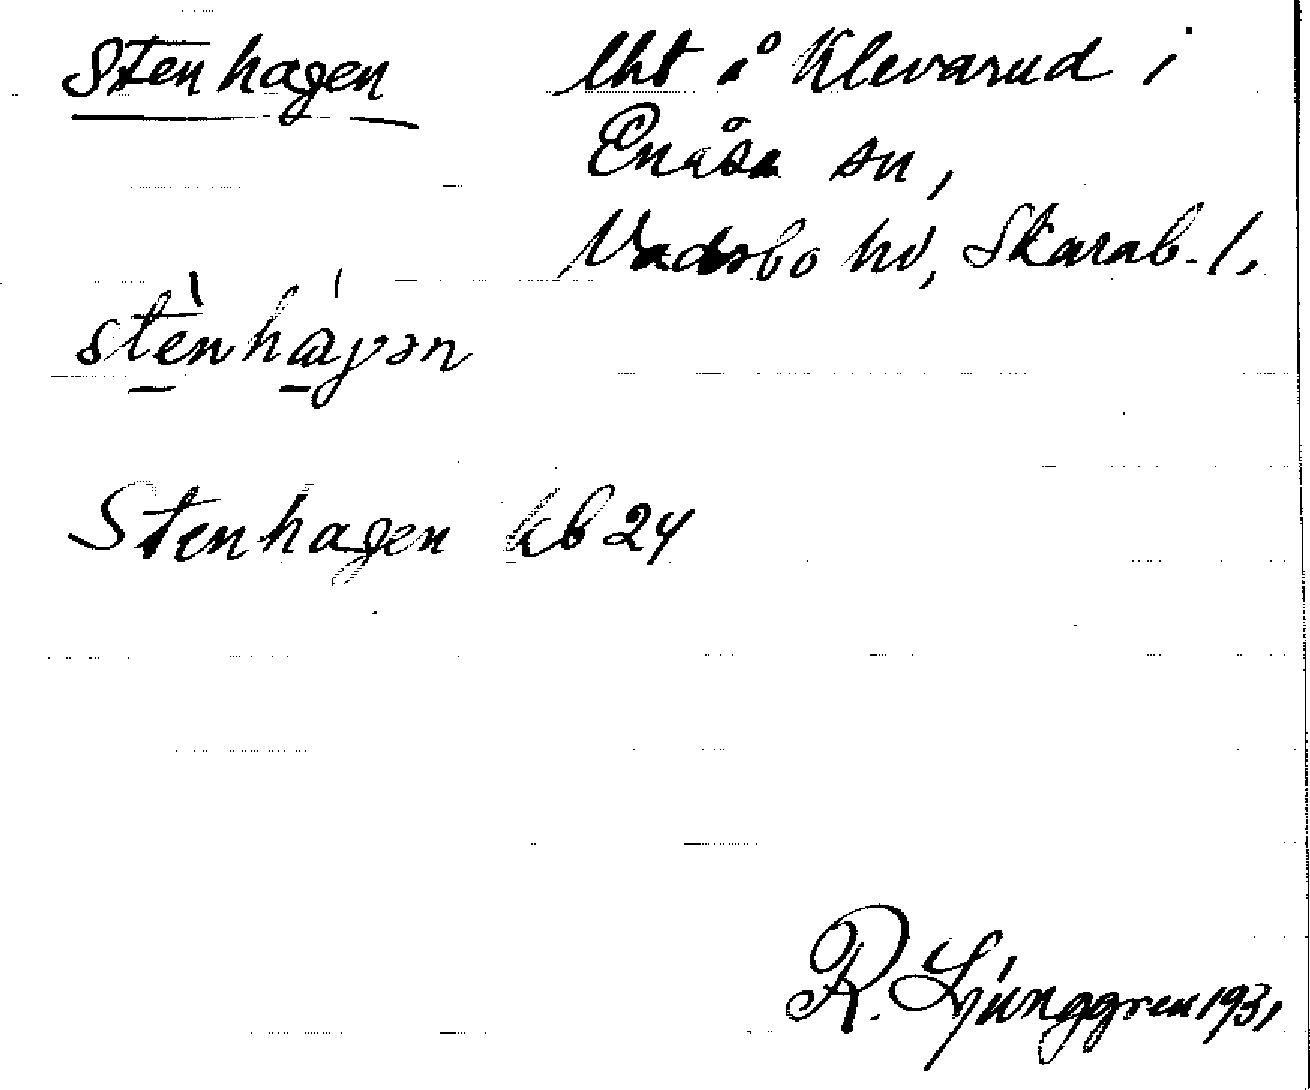 Stenhagen lht å Klevarud i
Enåsa sn,
Vadsbo hd, Skarab. l.
stènhàgən
Stenhagen kb 24
R. Ljunggren 1931